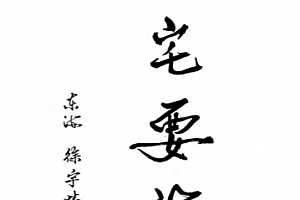 宅要
东海 徐宇